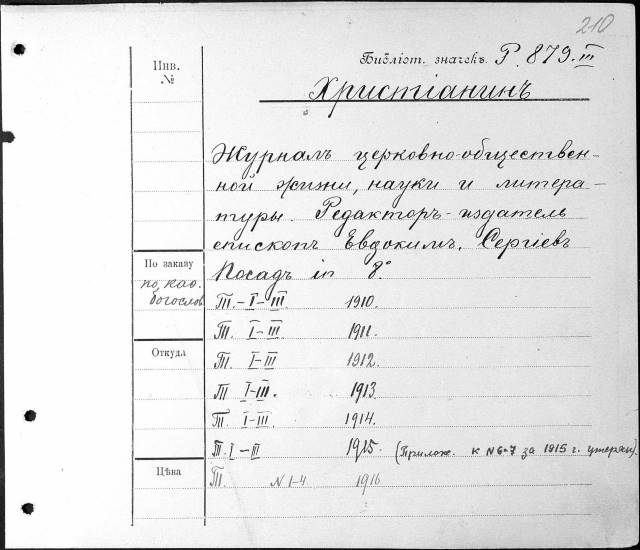 210
Инв.
№
Библіот. значекъ Р. 879. III
Христіанинъ
Журналъ церковно-обществен-
ной жизни, науки и литера-
туры. Редакторъ-издатель
епископъ Евдокимъ. Сергіевъ
Посадъ in 8°
По заказу
по каѳ.
богослов
Т. – I – III 1910.
Т. I – III 1911.
Откуда
Т. I – III 1912.
Т I – III. 1913
Т. I – III. 1914.
Т. I – III 1915. (Прилож. к №6-7 за 1915 г. утерян).
Цѣна
Т. N 1-4 1916